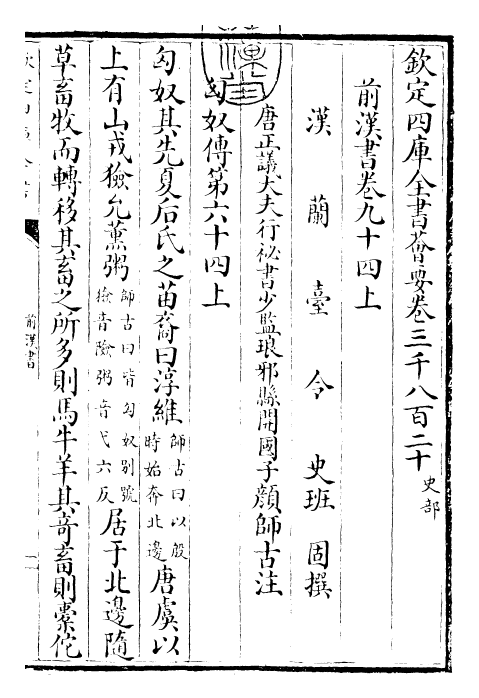 欽定四庫全書薈要卷三千八百二十 史部
前漢書卷九十四上
漢蘭臺令史班固撰
唐正議大夫行祕書少監琅邪縣開國子顏師古注
匈奴傳第六十四上
匈奴其先夏后氏之苗裔曰淳維師古曰以殷時始奔北邊唐虞以
上有山戎獫允薰粥師古曰皆匈奴別號獫音險粥音弋六反居于北邊隨
草畜牧而轉移其畜之所多則馬牛羊其奇畜則橐佗
前漢書